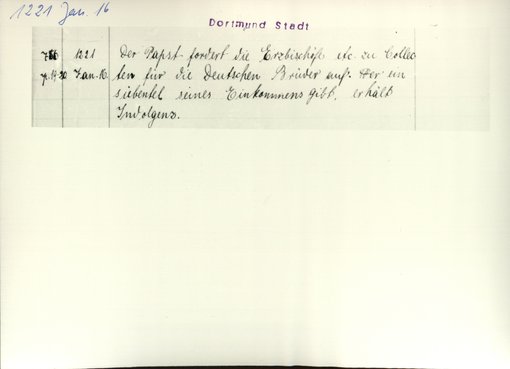 1221 Jan. 16
Dortmund Stadt
1221 Der Papst fordert die Erzbischöfe etc zu Collec
Jan. 16 ten für die Deutschen Brüder auf. Wer ein
siebentel seines Einkommens gibt, erhält
Indulgenz.